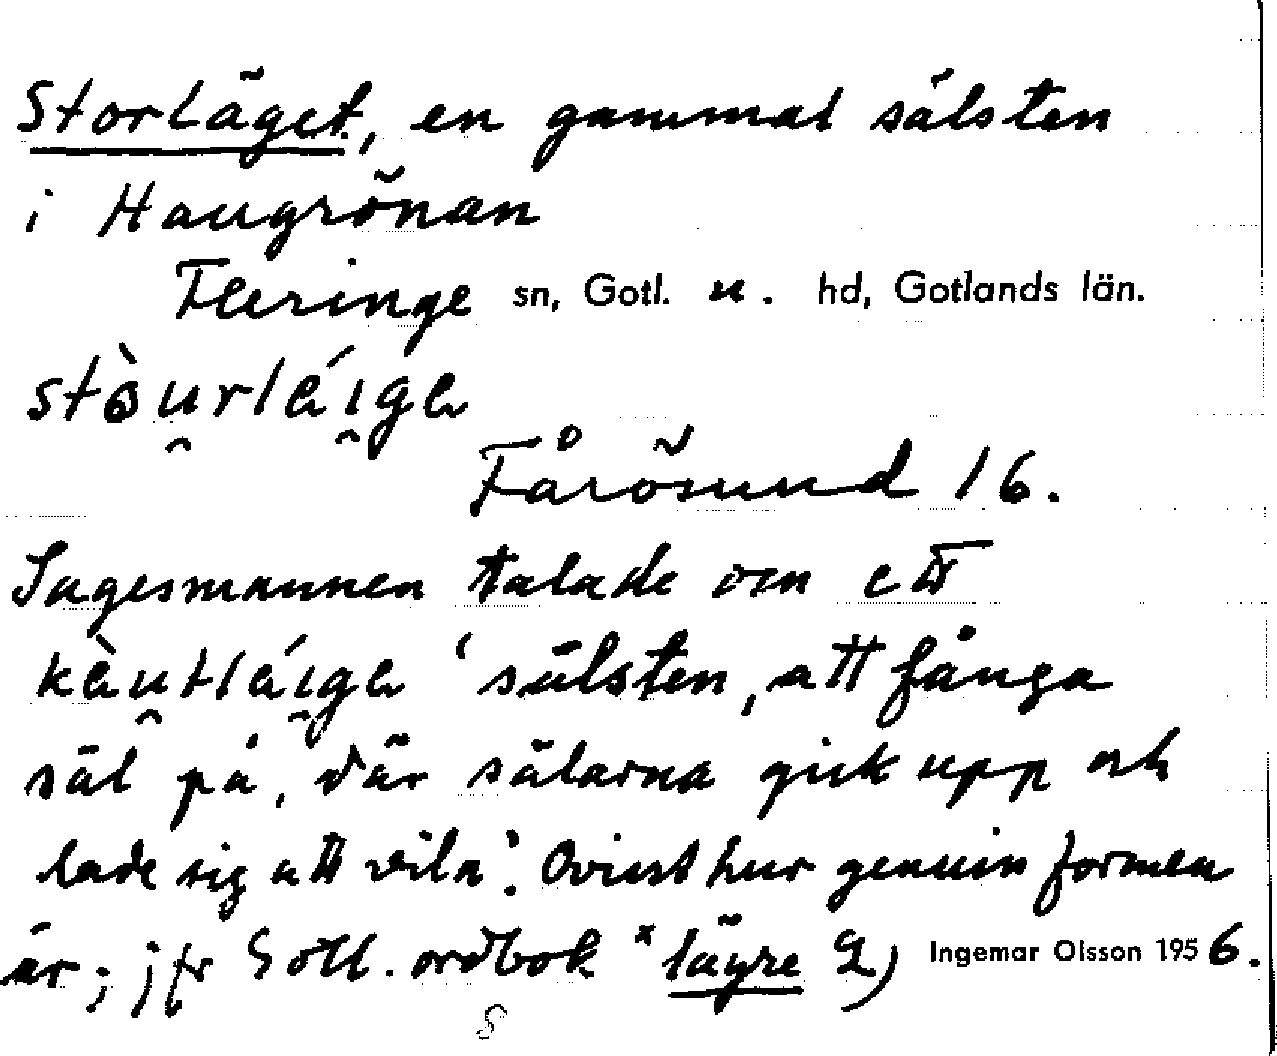 Storläget, en gammal sälsten
i Haugrönan
Fleringe sn, Gotl. n. hd, Gotlands län.
stòu̯rléi̯gə
Fårösund 16.
Sagesmannen talade om ett
kàu̯tléi̯gə 'sälsten, att fånga
säl på, där sälarna gick upp och
lade sig att vila'. Ovisst hur genuin formen
är; jfr Gotl. ordbok *läyre 2) Ingemar Olsson 1956.
S